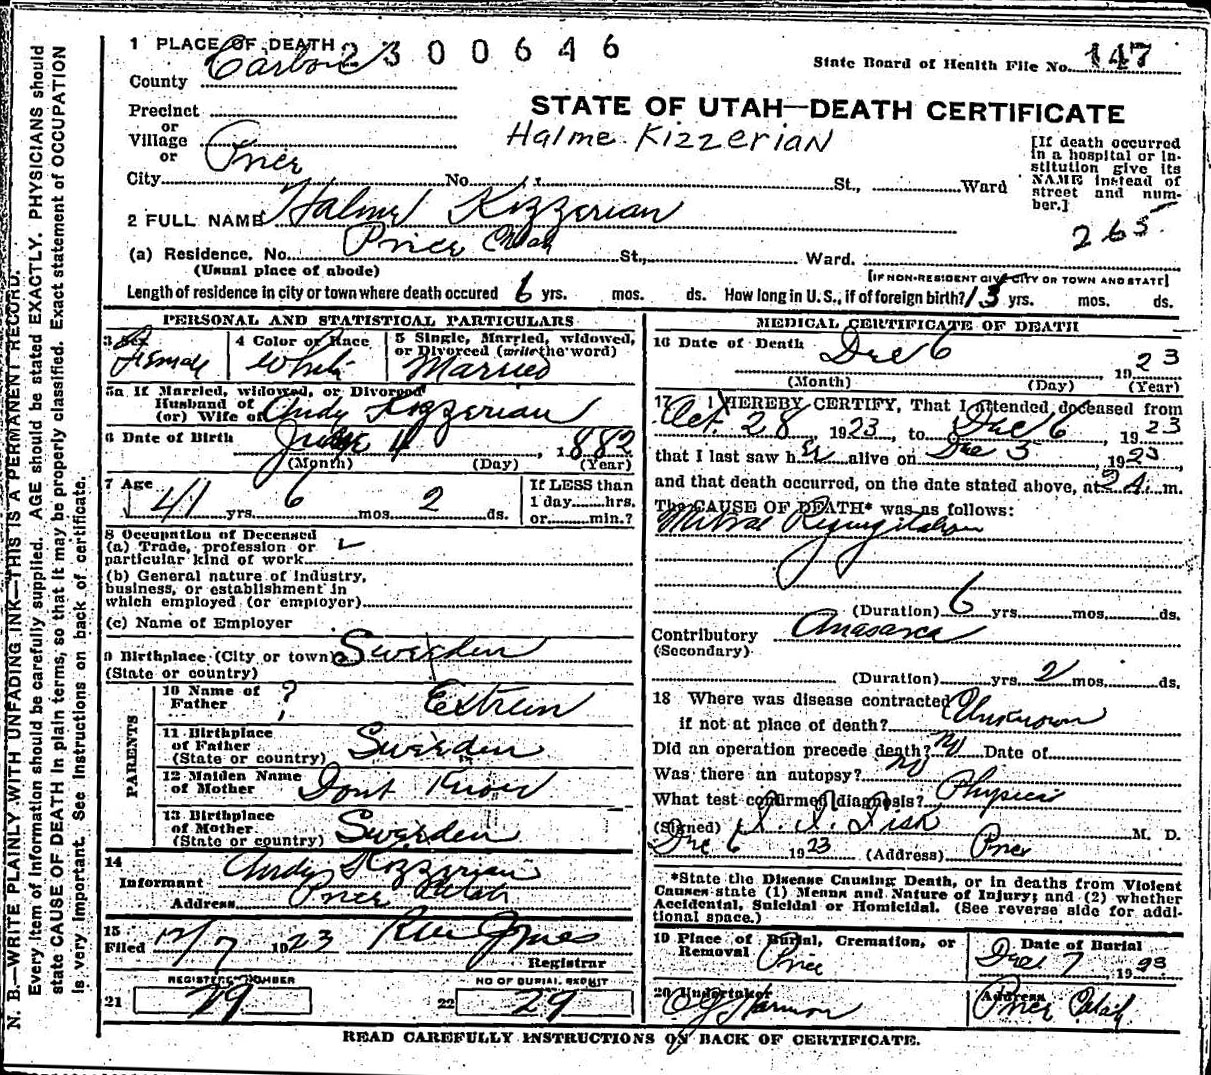 1 PLACE OF DEATH 2300646
State Board of Health File No. 147
County Carbon
STATE OF UTAH—DEATH CERTIFICATE
Precinct
or
Village
or
Halme Kizzerian
[If death occurred in a hospital or institution give its NAME instead of street and number.]
City Price No. St., Ward
2 FULL NAME Halme Kizzerian
265
(a) Residence. No. Price Utah St., Ward.
(Usual place of abode) [IF NON-RESIDENT GIVE CITY OR TOWN AND STATE]
Length of residence in city or town where death occured 6 yrs. mos. ds. How long in U.S., if of foreign birth? 13 yrs. mos. ds.
PERSONAL AND STATISTICAL PARTICULARS
3 Female
4 Color or Race White
5 Single, Married, widowed, or Divorced (write the word) Married
5a If Married, widowed, or Divorced
Husband of
(or) Wife of Andy Kizzerian
6 Date of Birth June 4, 1882
(Month) (Day) (Year)
7 Age 41 yrs. 6 mos. 2 ds.
If LESS than 1 day hrs. or min.?
8 Occupation of Deceased
(a) Trade, profession or
particular kind of work
(b) General nature of industry,
business, or establishment in
which employed (or employer)
(c) Name of Employer
9 Birthplace (City or town) Sweden
(State or country)
PARENTS
10 Name of Father ?
11 Birthplace of Father (State or country) Sweden
12 Maiden Name of Mother Dont Know
13 Birthplace of Mother (State or country) Sweden
14
Informant Andy Kizzerian
Address Price Utah
15
Filed 12/7 1923
Registrar
REGISTERED NUMBER
21 79
NO OF BURIAL PERMIT
22 29
MEDICAL CERTIFICATE OF DEATH
16 Date of Death Dec 6 1923
(Month) (Day) (Year)
17 I HEREBY CERTIFY, That I attended deceased from
Oct. 28, 1923, to Dec 6, 1923
that I last saw her alive on Dec 5, 1923,
and that death occurred, on the date stated above, at 2 A. m.
The CAUSE OF DEATH* was as follows:
Mitral Regurgitation
(Duration) 6 yrs. mos. ds.
Contributory Anasarca
(Secondary)
(Duration) yrs. 2 mos. ds.
18 Where was disease contracted
if not at place of death? Unknown
Did an operation precede death? No Date of
Was there an autopsy? No
What test confirmed diagnosis? Physical
(Signed) Fisk M. D.
Dec 6 1923 (Address) Price
*State the Disease Causing Death, or in deaths from Violent
Causes state (1) Means and Nature of Injury; and (2) whether
Accidental, Suicidal or Homicidal. (See reverse side for addi-
tional space.)
19 Place of Burial, Cremation, or Removal Price
Date of Burial Dec 7, 1923
20 Undertaker Harmon
Address Price Utah
READ CAREFULLY INSTRUCTIONS ON BACK OF CERTIFICATE.
N. B.—WRITE PLAINLY WITH UNFADING INK—THIS IS A PERMANENT RECORD.
Every item of information should be carefully supplied. AGE should be stated EXACTLY. PHYSICIANS should
state CAUSE OF DEATH in plain terms, so that it may be properly classified. Exact statement of OCCUPATION
is very important. See Instructions on back of certificate.